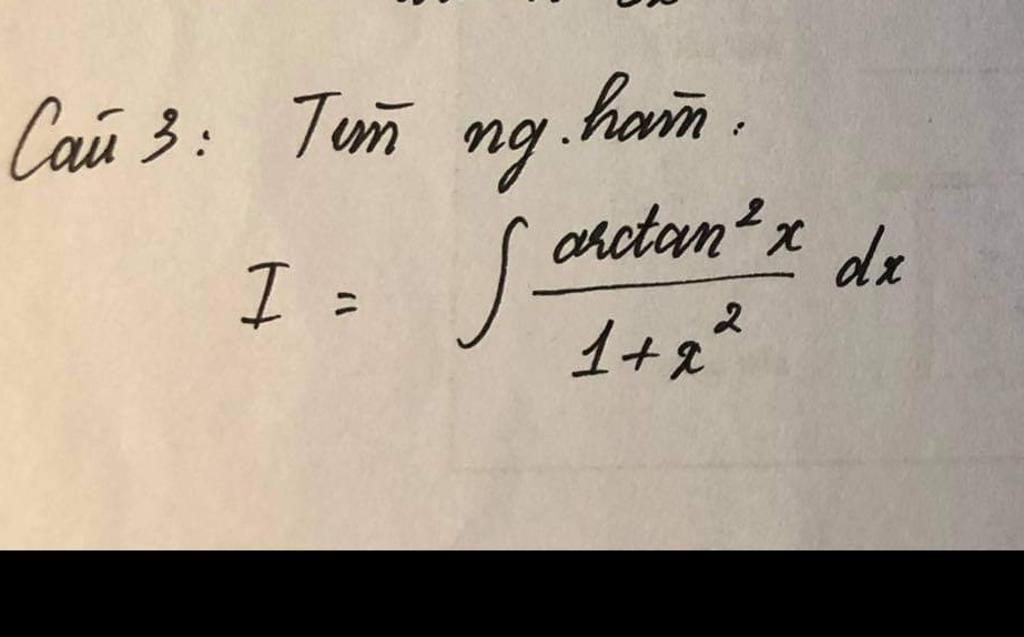 Câu 3: Tìm ng. hàm.
I = ∫ arctan²x / 1+x² dx